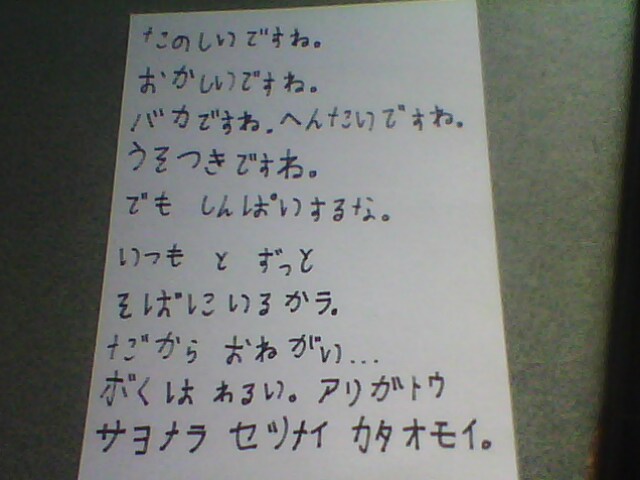 たのしいですね。
おかしいですね。
バカですね。へんたいですね。
うそつきですね。
でも しんぱいするな。
いつも と ずっと
そばにいるかラ。
だから おねがい...
ボくは わるい。 アリガトウ
サヨナラ セツナイ カタオモイ。